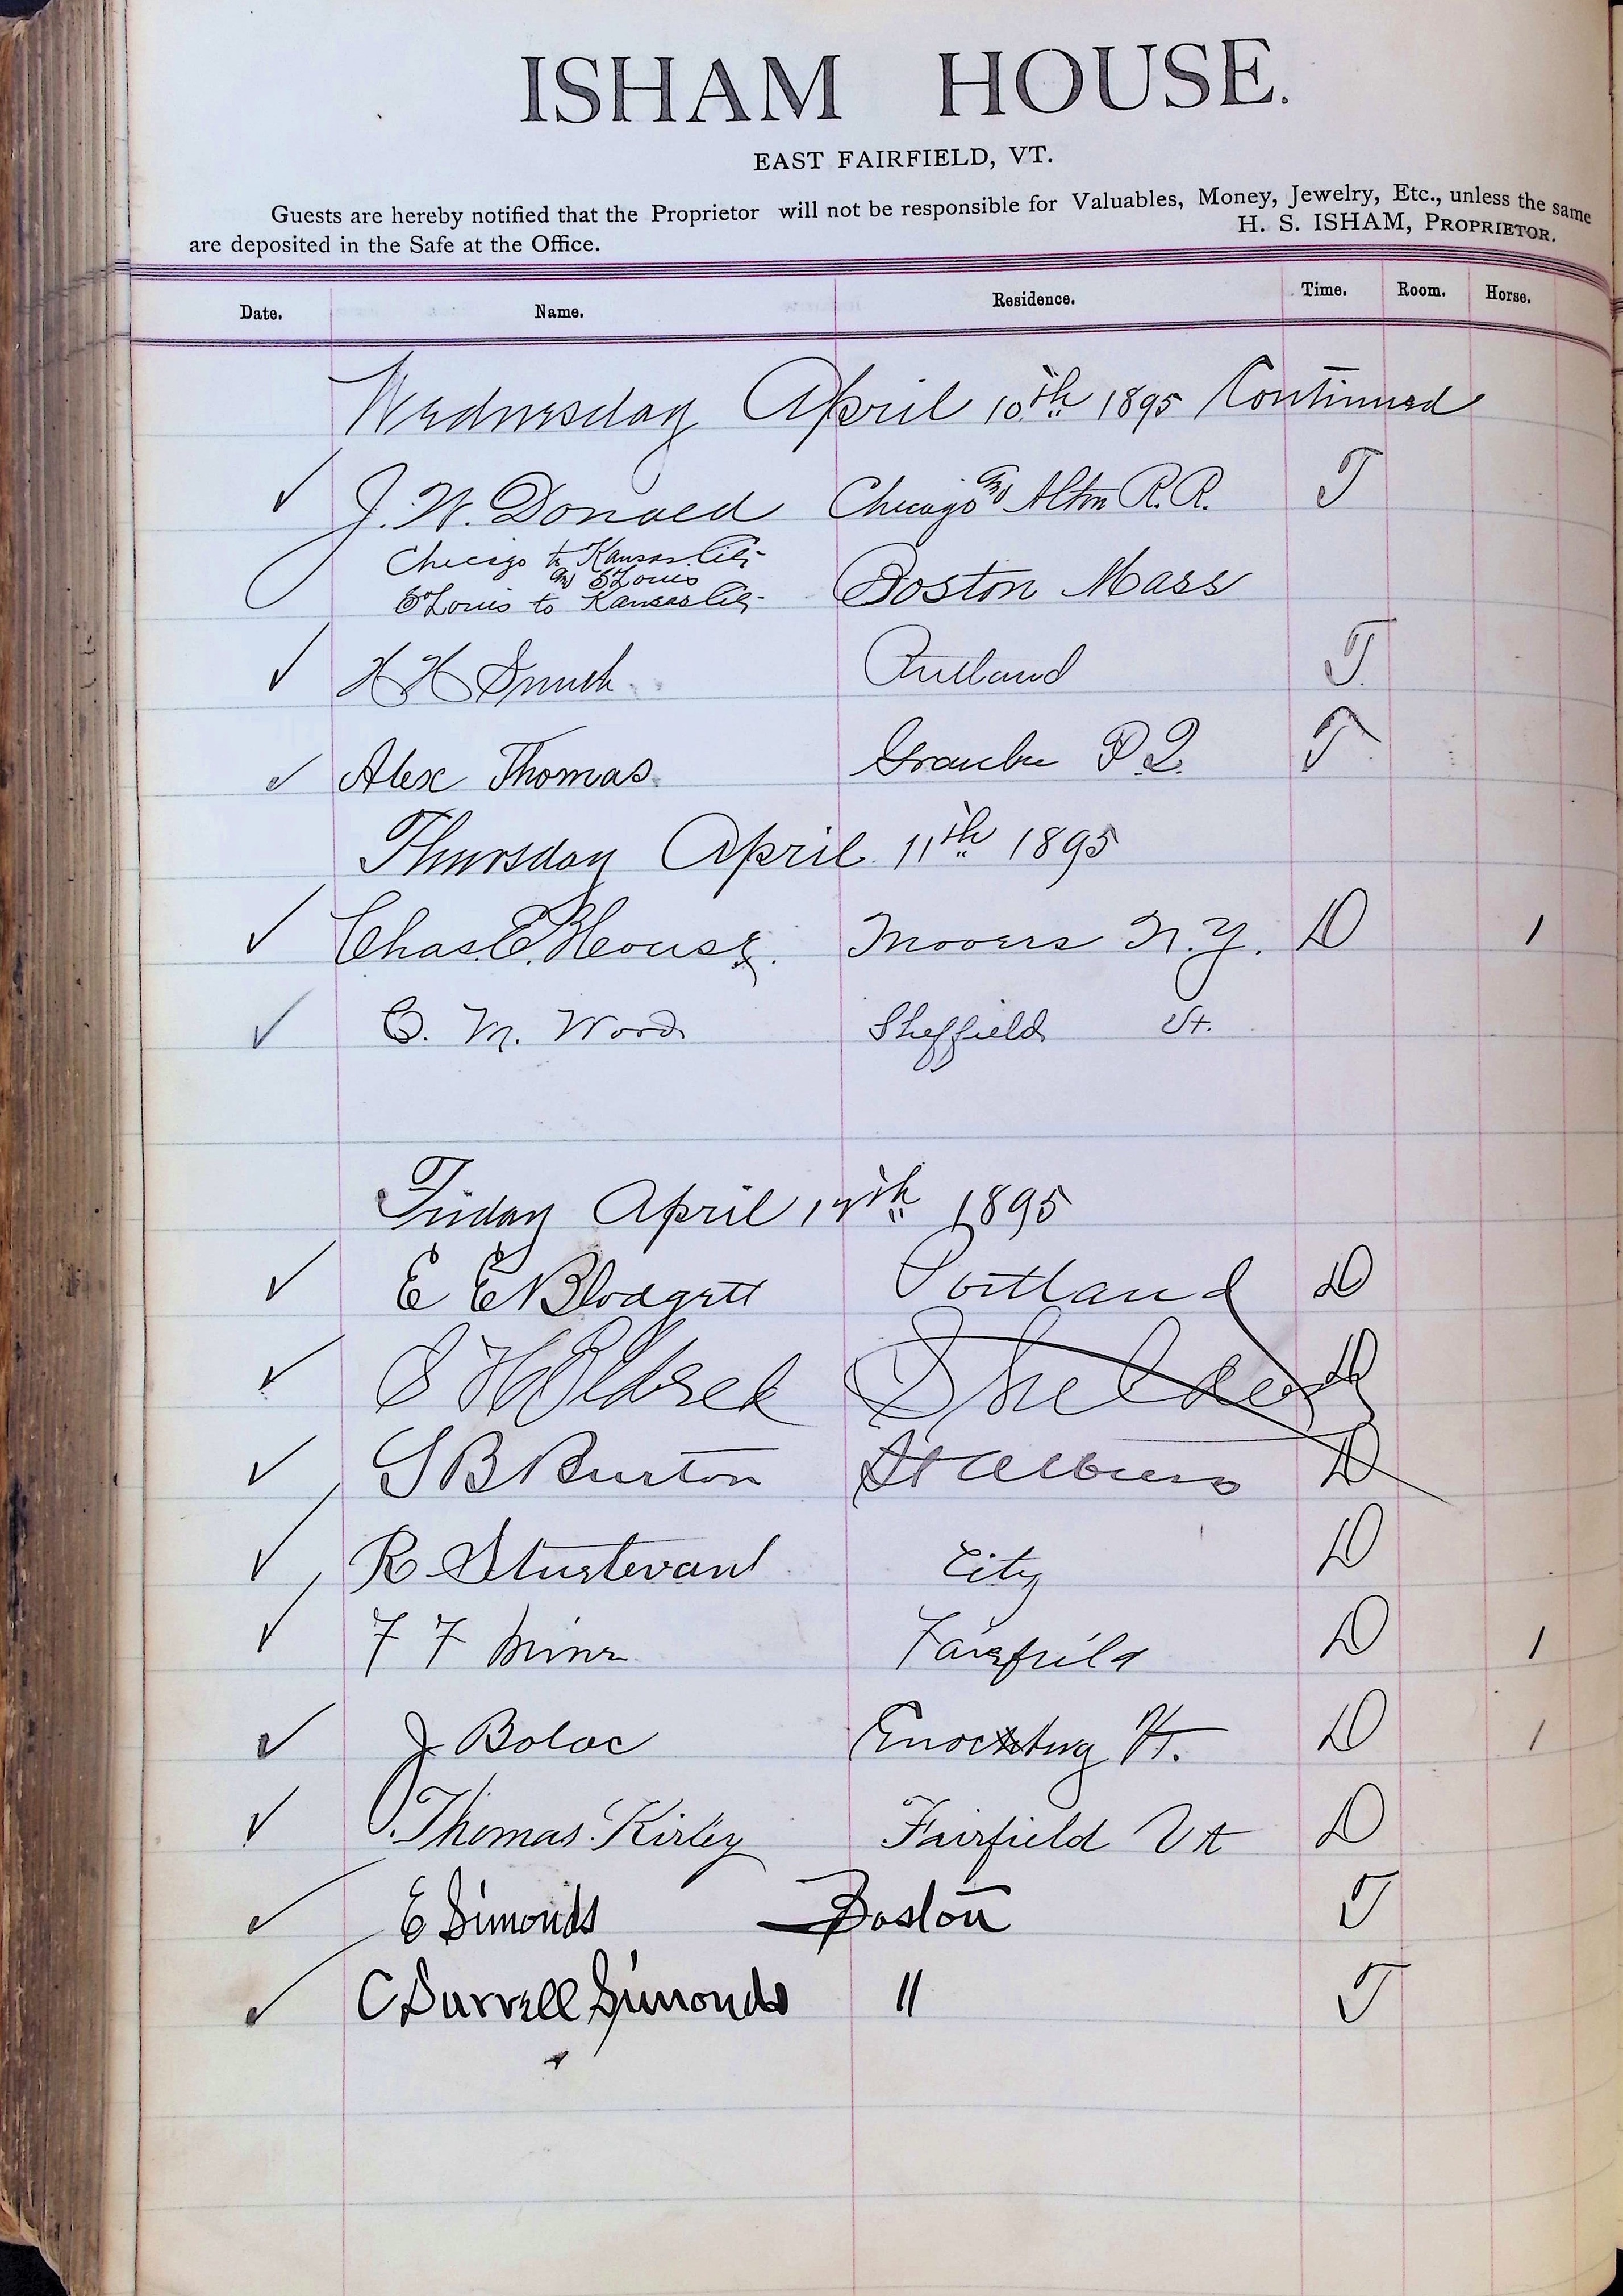 ISHAM HOUSE.
EAST FAIRFIELD, VT.
Guests are hereby notified that the Proprietor will not be responsible for Valuables, Money, Jewelry, Etc., unless the same
are deposited in the Safe at the Office.
H. S. ISHAM, PROPRIETOR.
Date. Name. Residence. Time. Room. Horse.
Wednesday April 10th 1895 Continued
✓ J. W. Donald Chicago and Alton R.R. T
Chicago to Kansas City
and St Louis Boston Mass
St Louis to Kansas City
✓ H H Smith Rutland T
✓ Alex Thomas Granby P Q. T
Thursday April 11th 1895
✓ Chas. E. House. Mooers N.Y. D 1
✓ C. M. Wood Sheffield Vt.
Friday April 12th 1895
✓ E E Blodgett Portland D
✓ Sheldon D
✓ S B Burton St Albans D
✓ R Sturtevant City D
✓ F F Minor Fairfield D 1
✓ J Bolac Enosburg Vt. D 1
✓ Thomas Kirley Fairfield Vt D
✓ E Simonds Boston T
✓ C Burrell Simonds " T